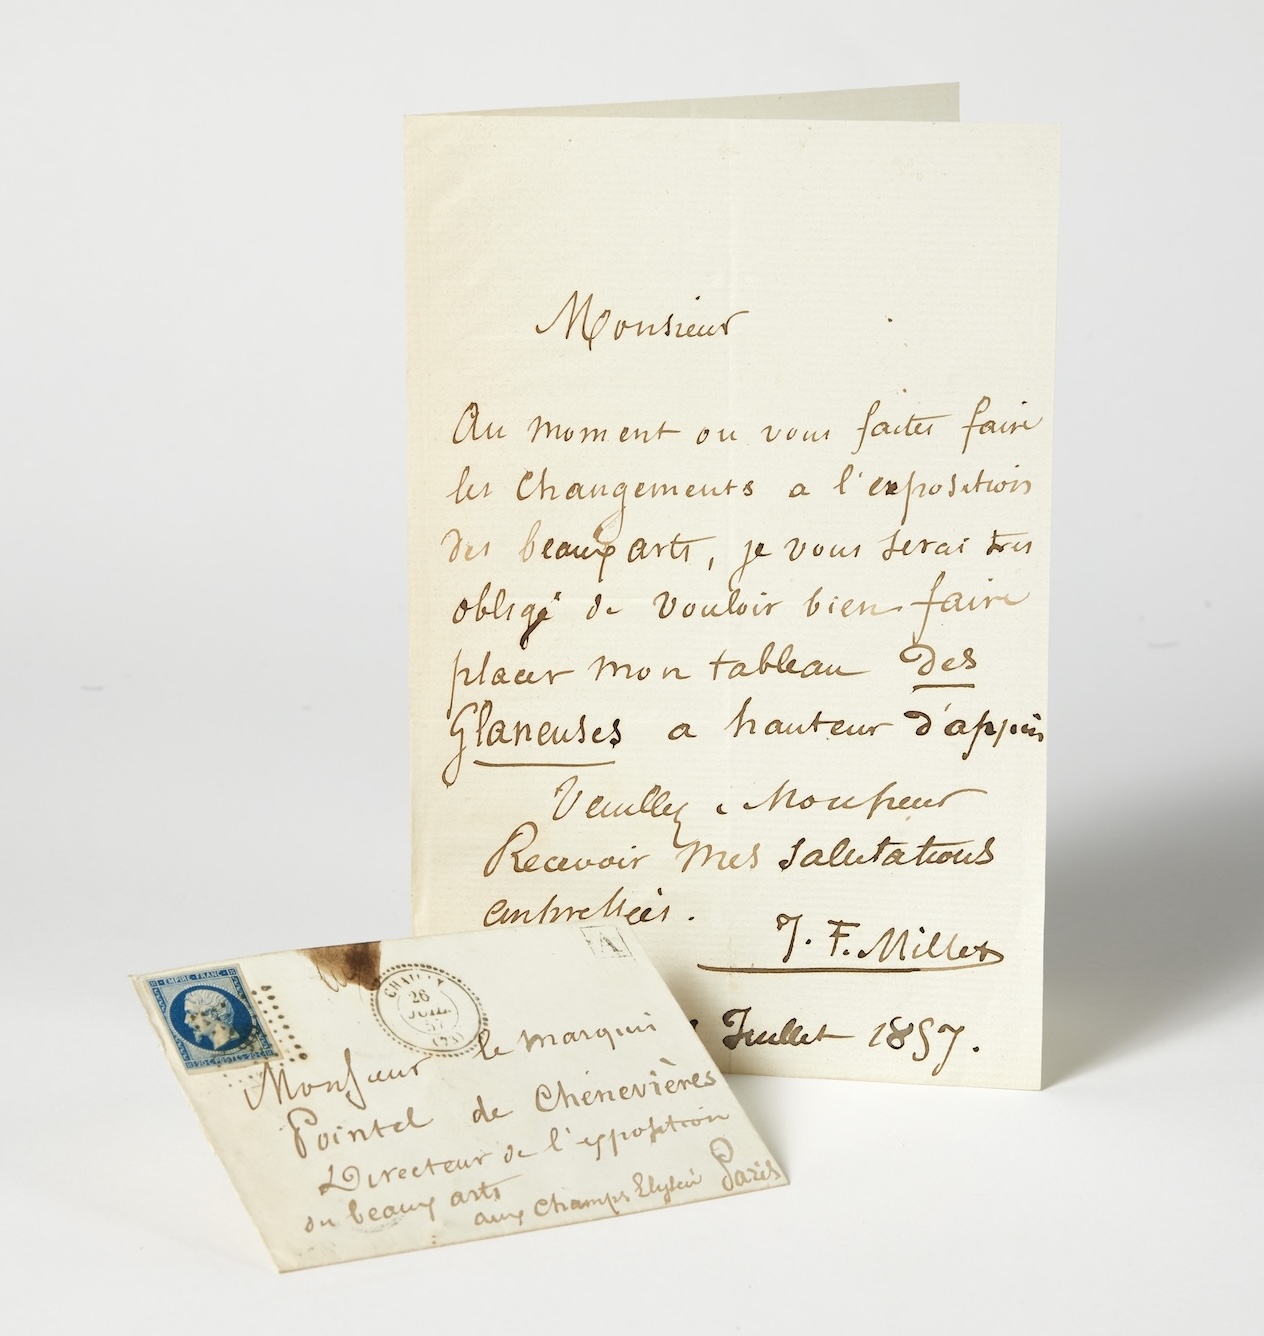 Monsieur
Au moment ou vous faites faire
les changements a l'exposition
des beaux arts, je vous serai tres
obligé de vouloir bien faire
placer mon tableau Des
Glaneuses a hauteur d'appui
Veuillez Monsieur
Recevoir mes salutations
empressées.
J. F. Millet
Juillet 1857.
A
EMPIRE FRANC
20 C POSTES 20 C
CHAILLY
26
JUIL.
57
Monsieur le marquis
Pointel de Chénevières
Directeur de l'exposition
du beaux arts
aux Champs Elysées Paris